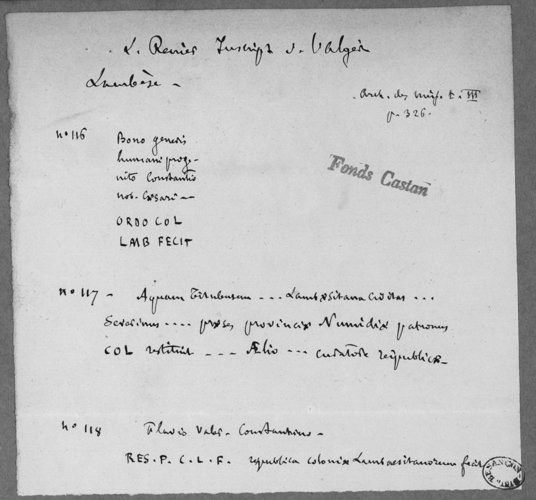 L. Renier Inscript. d. l'Algér
Lambèse -
Arch. des miss. t. III
p. 326.
n° 116
Bono generis
humani proge-
nito Constantio
nob. Cæsari -
ORDO COL
LAMB FECIT
Fonds Castan
n° 117 - Aquam Titulensem --- Lambæsitana civitas ...
Severinus .... præses provinciæ Numidiæ patronus
COL restituit --- Ælio --- curatore reipublicæ -
n° 118 Flavio Valer. Constantino -
RES. P. C. L. F. respublica coloniæ Lambaesitanorum fecit